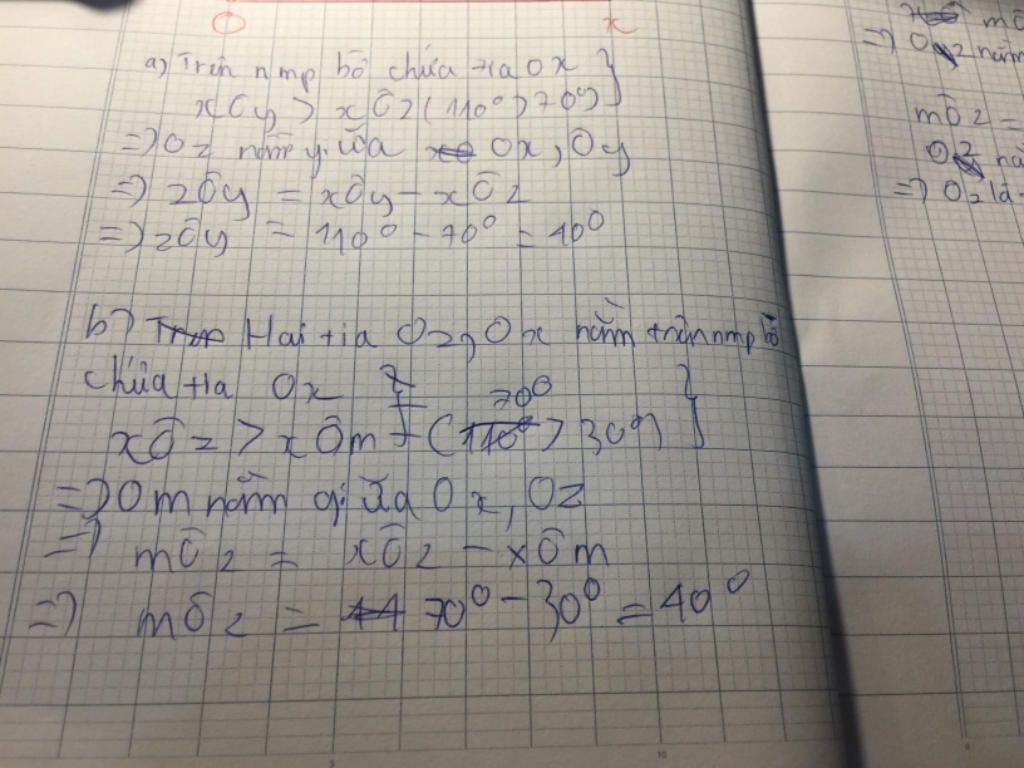 O x
a) Trên nmp bờ chứa tia Ox }
xÔy > xÔz (110° > 70°)
=> Oz nằm giữa Ox, Oy
=> zÔy = xÔy - xÔz
=> zÔy = 110° - 70° = 40°
b) Hai tia Oz, Ox nằm trên nmp bờ
chứa tia Ox }
xÔz > xÔm (70° > 30°)
=> Om nằm giữa Ox, Oz
=> mÔz = xÔz - xÔm
=> mÔz = 70° - 30° = 40°
=> Oz nằm
mÔz =
Oz
=> Oz là